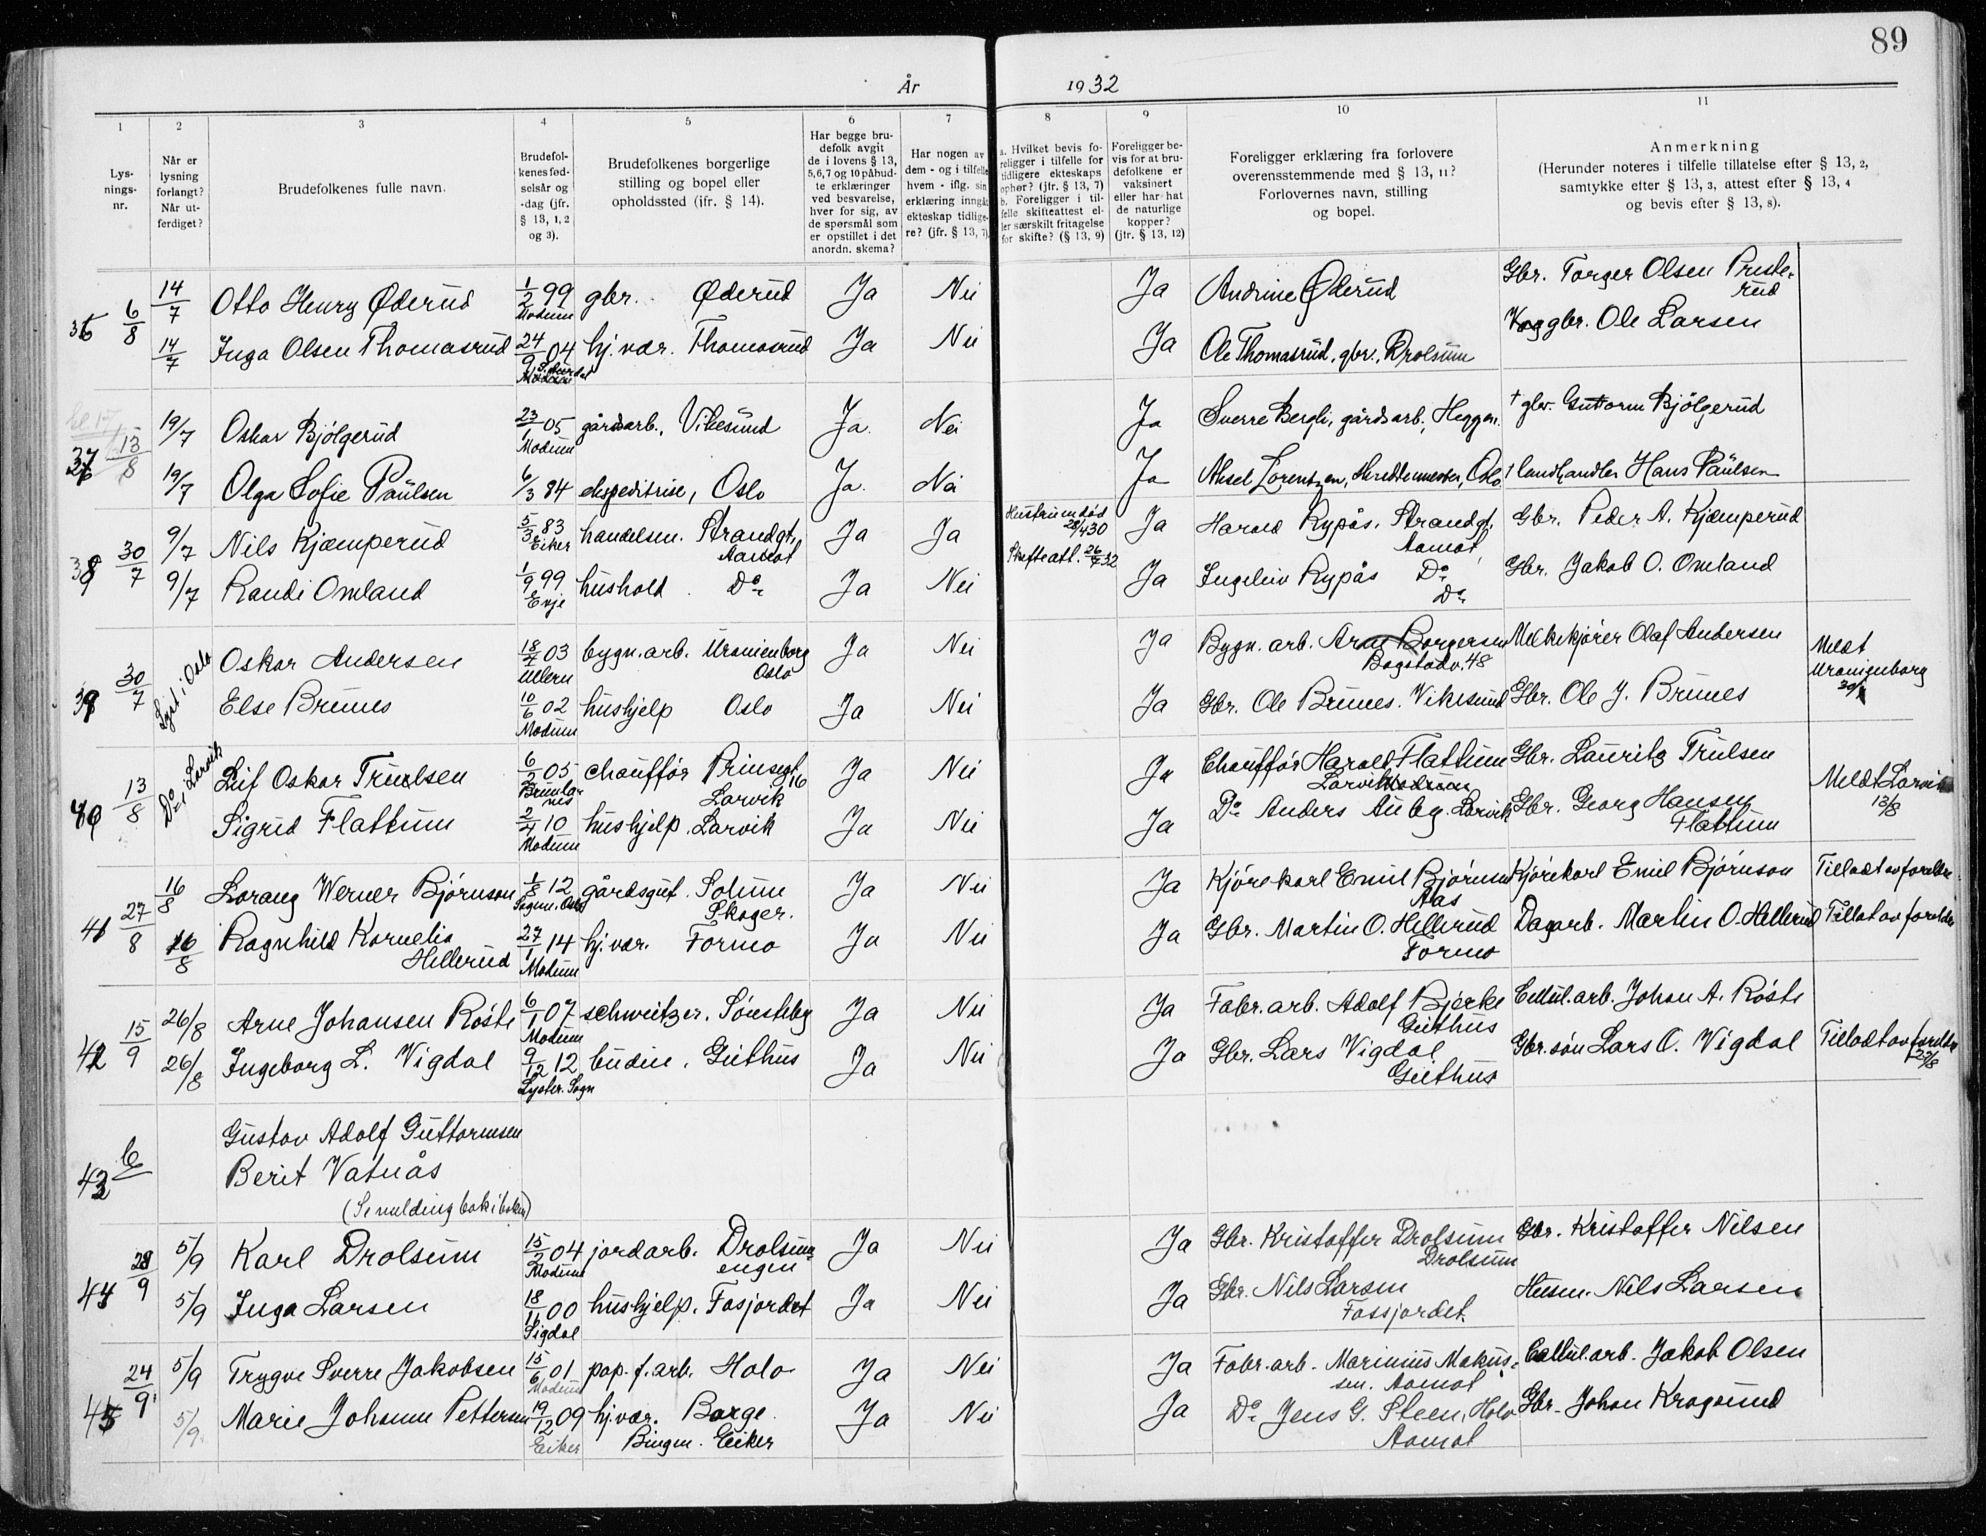 89
År 1932
1 2 3 4 5 6 7 8 9 10 11
Lys-
nings-
nr.
Når er
lysning
forlangt?
Når ut-
ferdiget?
Brudefolkenes fulle navn.
Brudefol-
kenes fød-
selsår og
-dag (jfr.
§ 13, 1, 2
og 3).
Brudefolkenes borgerlige
stilling og bopel eller
opholdssted (jfr. § 14).
Har begge bru-
defolk avgit
de i lovens § 13,
5,6,7 og 10 påbud-
te erklæringer
ved besvarelse,
hver for sig, av
de spørsmål som
er opstillet i det
anordn. skema?
Har nogen av
dem - og i tilfelle
hvem - iflg. sin
erklæring inngåt
ekteskap tidlige-
re? (jfr. § 13, 7)
a. Hvilket bevis fo-
religger i tilfelle for
tidligere ekteskaps
ophør? (jfr. § 13, 7)
b. Foreligger i til-
felle skifteattest el-
ler særskilt fritagelse
for skifte? (§ 13, 9)
Foreligger be-
vis for at bru-
defolkene er
vaksinert
eller har hat
de naturlige
kopper?
(jfr. § 13, 12)
Foreligger erklæring fra forlovere
overensstemmende med § 13, 11?
Forlovernes navn, stilling
og bopel.
Anmerkning
(Herunder noteres i tilfelle tillatelse efter § 13, 2,
samtykke efter § 13, 3, attest efter § 13, 4
og bevis efter § 13, 8).
36 6/8 14/7 Otto Henry Øderud 1/2 99 Modum gbr. Øderud Ja Nei Ja Andrine Øderud Gbr. Torger Olsen Preste-
rud
14/7 Inga Olsen Thomasrud 24/9 04 hj. vær. Thomasrud Ja Nei Ja Ole Thomasrud, gbr., Drolsum gbr. Ole Larsen
37 13/8 19/7 Oskar Bjölgerud 23/1 05 Modum gårdsarb., Vikesund Ja. Nei Ja Sverre Bergli, gårdsarb., Heggen. † gbr. Guttorm Bjölgerud
19/7 Olga Sofie Paulsen 6/3 84 ekspeditrise, Oslo Ja. Nei Ja Aksel Lorentzen, skreddermester, Oslo † landhandler Hans Paulsen
38 30/7 9/7 Nils Kjæmperud 5/3 83 Eiker handelsm. Strandgt, Aamot Ja Ja Hustruen död 28/4 30 Ja Harald Rypås, Strandgt, Aamot Gbr. Peder A. Kjæmperud
9/7 Randi Omland 1/9 99 Evje hushold. Do Ja Nei Skifteatt. 26/7 32 Ja Ingeleiv Rypås Do Do Gbr. Jakob O. Omland
39 30/7 Lyst i Oslo Oskar Andersen 18/7 03 Ullern bygn. arb. Uranienborg Oslo Ja Nei Ja Bygn. arb. Arne Borgersen Bogstadv. 48 Melkekjører Olaf Andersen Meldt
Uranienborg
30/7
Else Brunes 10/6 02 Modum hushjelp Oslo Ja Nei Ja Gbr. Ole Brunes. Vikesund Gbr. Ole J. Brunes
40 13/8 Do i Larvik Leif Oskar Truelsen 6/2 05 Brunlanes chauffør Prinsegt 16 Larvik Ja Nei Ja Chauffør Harald Flattum Larvik Gbr. Lauritz Trulsen Meldt Larvik
13/8
Sigrid Flattum 2/4 10 Modum hushjelp. Larvik Ja Nei Ja Do Anders Auby. Larvik Gbr. Georg Hansen
Flattum
41 27/8 16/8 Lorang Werner Bjørnson 1/8 12 gårdsgut. Solum Skoger. Ja Nei Ja Kjørekarl Emil Bjørnson Aas Kjørekarl Emil Bjørnson Tilladt av foreldre.
16/8 Ragnhild Kornelia
Hellerud 27/1 14 Modum hj. vær. Formo Ja Nei Ja Gbr. Martin O. Hellerud Formo Dagarb. Martin O. Hellerud Tillat av foreldre
42 15/9 26/8 Arne Johansen Røste 6/1 07 Modum schweitzer. Sønsteby Ja Nei Ja Fabr. arb. Adolf Bjerke Geithus Cellul. arb. Johan A. Røste
26/8 Ingeborg L. Vigdal 9/12 12 Lyster. Sogn budeie. Geithus Ja Nei Ja Gbr. Lars Vigdal. Geithus Gbr. søn Lars O. Vigdal Tilladt av foreldre
29/8
43 6 Gustav Adolf Guttormsen
Berit Vatnås
(Se melding bak i boken)
44 28/9 5/9 Karl Drolsum 15/2 04 Modum jordarb. Drolsum engen Ja Nei Ja Gbr. Kristoffer Drolsum Drolsum Gbr. Kristoffer Nilsen
5/9 Inga Larsen 18/11 00 Sigdal hushjelp. Fosjordet Ja Nei Ja Gbr. Nils Larsen Fossjordet Husm. Nils Larsen
45 24/9 5/9 Trygve Sverre Jakobsen 15/6 01 Modum pap. f. arb. Holo Ja Nei Ja Fabr. arb. Marinius Makus-
sen. Aamot Cellul. arb. Jakob Olsen
5/9. Marie Johanne Pettersen 19/12 09 Eiker hj. vær. Borge. Bingen. Eiker Ja Nei Ja Do Jens G. Steen, Holo Aamot Gbr. Johan Kragsrud